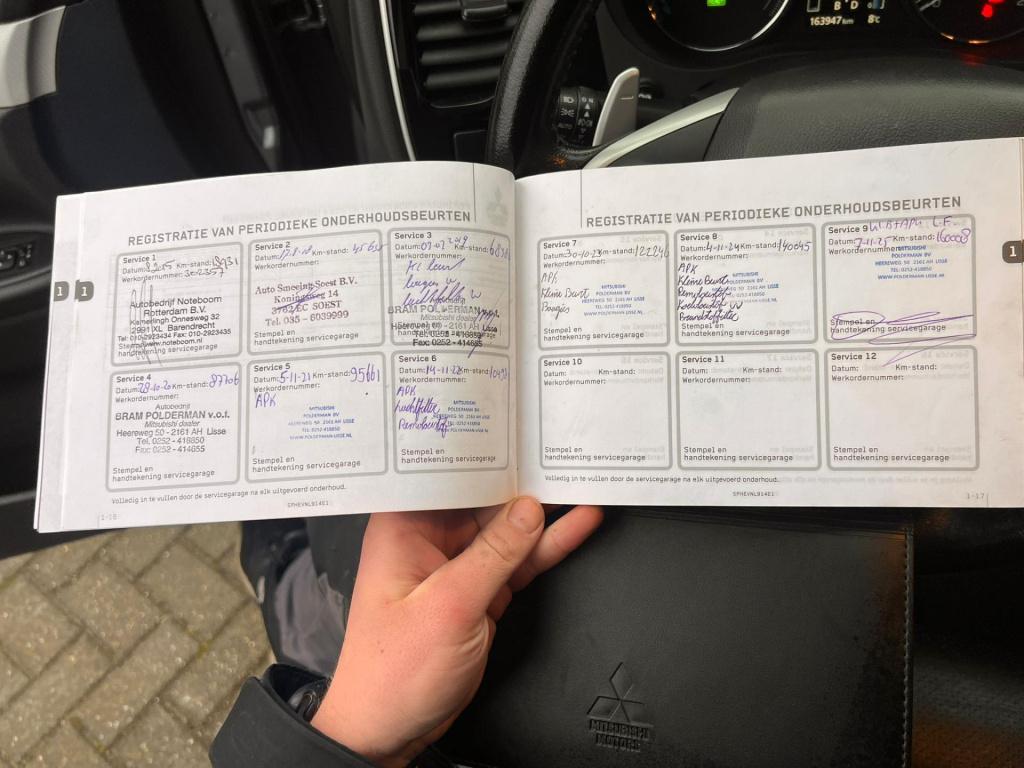 B D
163947 km 8°C
AUTO
REGISTRATIE VAN PERIODIEKE ONDERHOUDSBEURTEN
Service 1
Datum: Km-stand:
Werkordernummer:
Autobedrijf Noteboom
Rotterdam B.V.
Kamerlingh Onnesweg 32
2991 XL Barendrecht
Tel: 010-2923434 Fax: 010-2923435
www.noteboom.nl
Stempel en
handtekening servicegarage
Service 2
Datum: Km-stand:
Werkordernummer:
Auto Smeeing Soest B.V.
Koningsweg 14
3762 EC SOEST
Tel. 035 - 6039999
Stempel en
handtekening servicegarage
Service 3
Datum: Km-stand:
Werkordernummer:
BRAM POLDERMAN v.o.f.
Mitsubishi dealer
Heereweg 50 - 2161 AH Lisse
Tel. 0252 - 418850
Fax: 0252 - 414655
Service 4
Datum: 28-10-20 Km-stand: 87706
Werkordernummer:
Autobedrijf
BRAM POLDERMAN v.o.f.
Mitsubishi dealer
Heereweg 50 - 2161 AH Lisse
Tel. 0252 - 418850
Fax: 0252 - 414655
Stempel en
handtekening servicegarage
Service 5
Datum: 5-11-21 Km-stand: 95661
Werkordernummer:
APK
MITSUBISHI
POLDERMAN BV
HEEREWEG 50 2161 AH LISSE
TEL: 0252-418850
WWW.POLDERMAN-LISSE.NL
Stempel en
handtekening servicegarage
Service 6
Datum: 14-11-22 Km-stand:
Werkordernummer:
APK
Luchtfilter
Remvloeistof
MITSUBISHI
POLDERMAN BV
HEEREWEG 50 2161 AH LISSE
TEL: 0252-418850
WWW.POLDERMAN-LISSE.NL
Stempel en
handtekening servicegarage
Volledig in te vullen door de servicegarage na elk uitgevoerd onderhoud.
GPHEVNL914E1
1-16
1
1
REGISTRATIE VAN PERIODIEKE ONDERHOUDSBEURTEN
Service 7
Datum: 30-10-23 Km-stand: 122246
Werkordernummer:
APK
Kleine Beurt
Bougies
MITSUBISHI
POLDERMAN BV
HEEREWEG 50 2161 AH LISSE
TEL: 0252-418850
WWW.POLDERMAN-LISSE.NL
Stempel en
handtekening servicegarage
Service 8
Datum: 4-11-24 Km-stand: 140045
Werkordernummer:
APK
Kleine Beurt
Remvloeistof
Koelvloeistof VV
Brandstoffilter
MITSUBISHI
POLDERMAN BV
HEEREWEG 50 2161 AH LISSE
TEL: 0252-418850
WWW.POLDERMAN-LISSE.NL
Stempel en
handtekening servicegarage
Service 9
Datum: 7-11-25 Km-stand: 160008
Werkordernummer:
MITSUBISHI
POLDERMAN BV
HEEREWEG 50 2161 AH LISSE
TEL: 0252-418850
WWW.POLDERMAN-LISSE.NL
Stempel en
handtekening servicegarage
Service 10
Datum: Km-stand:
Werkordernummer:
Stempel en
handtekening servicegarage
Service 11
Datum: Km-stand:
Werkordernummer:
Stempel en
handtekening servicegarage
Service 12
Datum: Km-stand:
Werkordernummer:
Stempel en
handtekening servicegarage
GPHEVNL914E1
1-17
1
MITSUBISHI
MOTORS